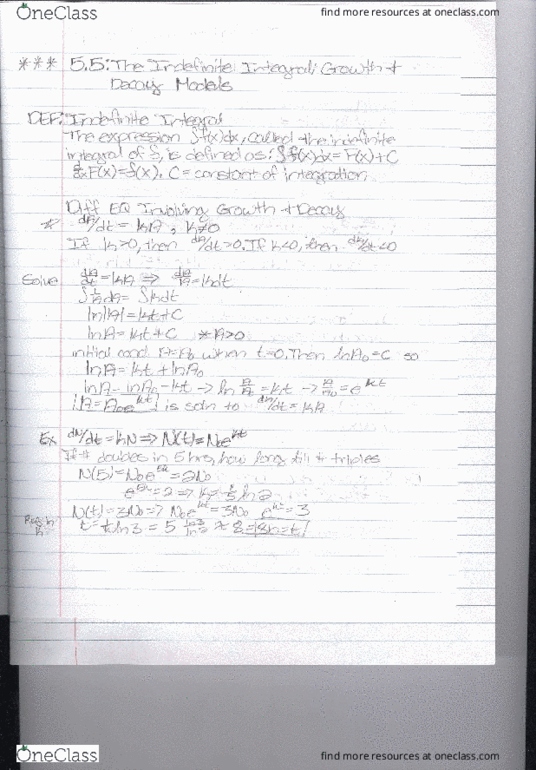 OneClass
find more resources at oneclass.com
*** 5.5: The Indefinite Integral: Growth +
Decay Models
DEF: Indefinite Integral
The expression ∫f(x)dx, called the indefinite
integral of f, is defined as: ∫f(x)dx = F(x)+C
d/dx F(x)=f(x). C = constant of integration
Diff EQ Involving Growth + Decay
* dA/dt = kA, k≠0
If k>0, then dA/dt>0. If k<0, then dA/dt<0
Solve dA/dt = kA ⇒ dA/A = kdt
∫1/A dA = ∫kdt
ln|A| = kt+C
lnA = kt+C *A>0
initial cond A=A₀ when t=0. Then lnA₀=C so
lnA = kt + lnA₀
lnA - lnA₀ = kt → ln A/A₀ = kt → A/A₀ = e^kt
A=A₀e^kt is soln to dA/dt = kA
Ex dN/dt = kN ⇒ N(t)=N₀e^kt
If # doubles in 5 hrs, how long till # triples
N(5)=N₀e^5k = 2N₀
e^5k = 2 ⇒ k = 1/5 ln2
N(t)=3N₀ ⇒ N₀e^kt = 3N₀ e^kt = 3
t = 1/k ln3 = 5 ln3/ln2 ≈ 8
OneClass
find more resources at oneclass.com